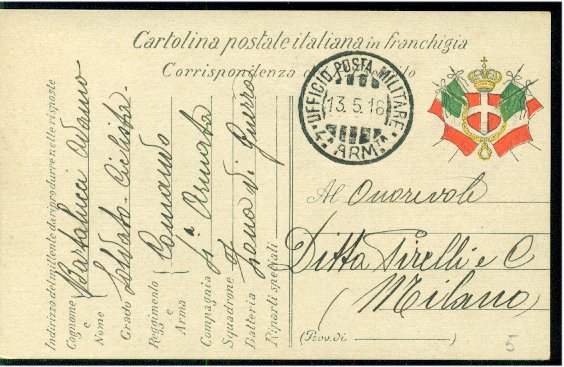 Cartolina postale italiana in franchigia
Corrispondenza
UFFICIO POSTA MILITARE
13.5.16
ARM
Al Onorevole
Ditta Pirelli e C
Milano
(Prov. di )
5
Indirizzo del mittente da riprodurre nelle risposte
Cognome e Nome Bartolucci Adamo
Grado Soldato Ciclista
Reggimento e Arma Comando
Compagnia Armata
Squadrone Zona di Guerra
Batteria
Riparti speciali